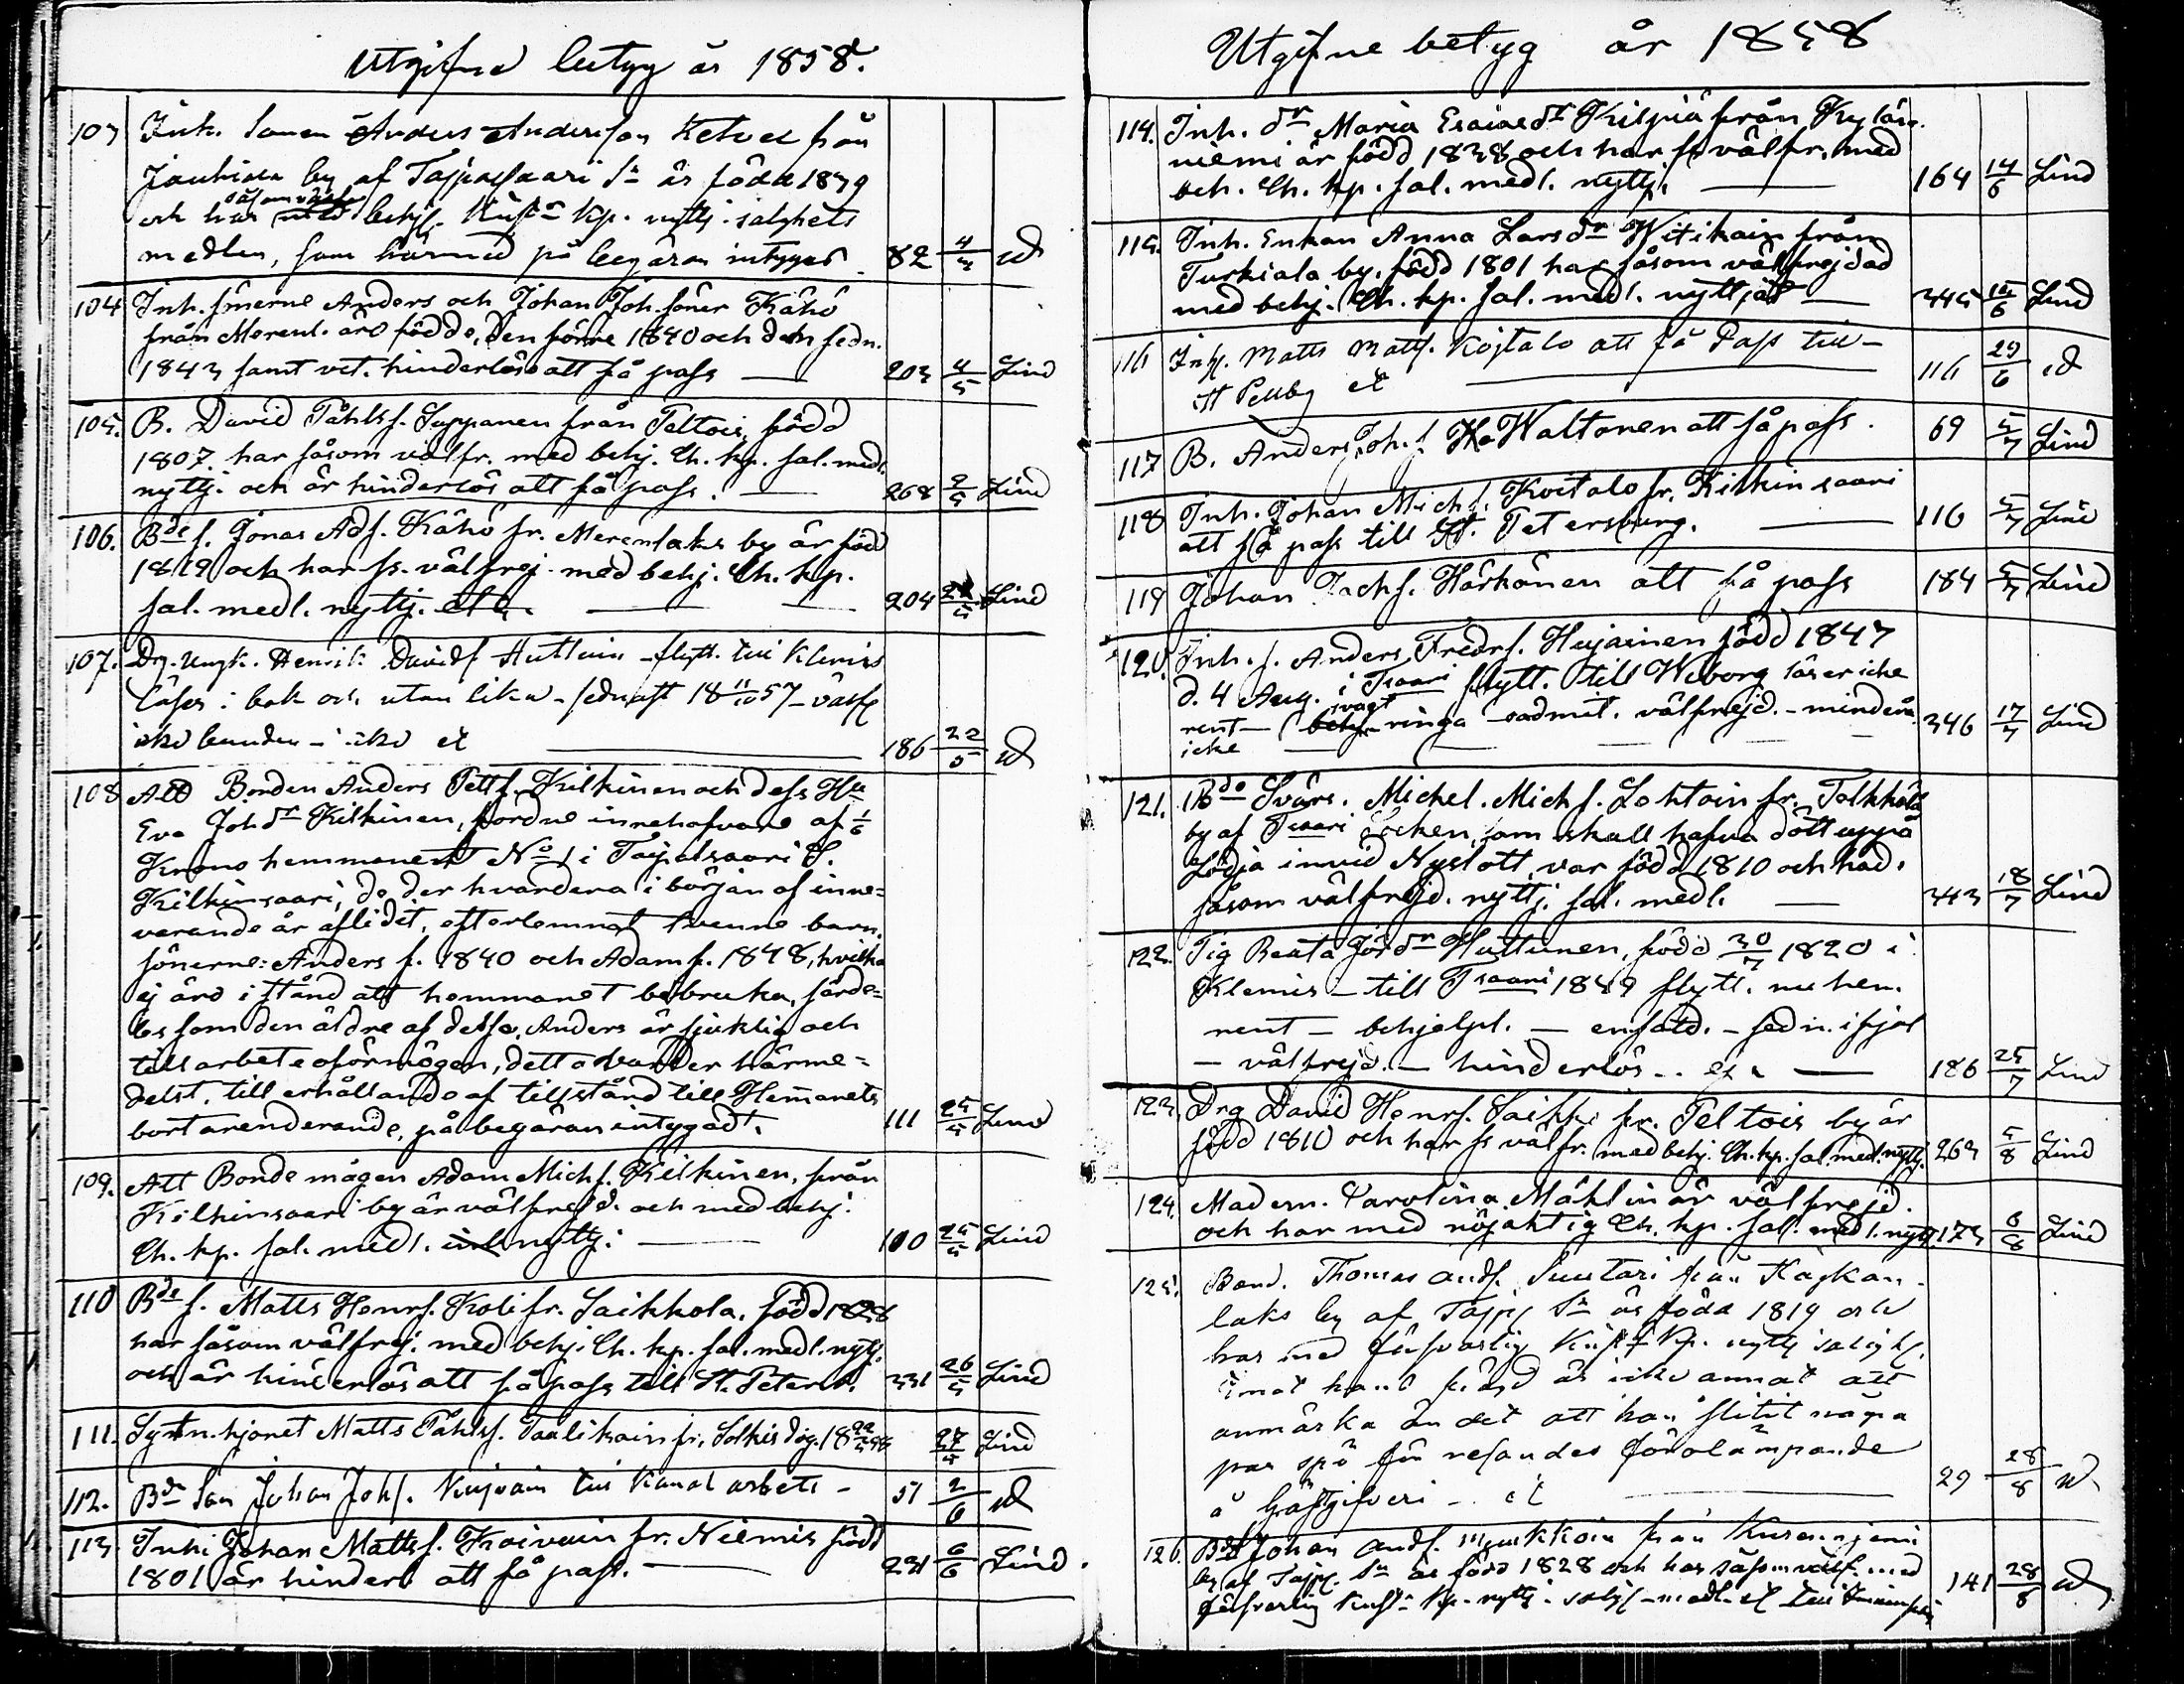 Utgifne betyg år 1858.
103 Inh. sonen Anders Andersson Ketvel från
Jauhiala by af Taipalsaari Sn är född 1839
såsom välfr.
och har med behj. Kristl. kp. nyttj. salighets
medlen, som härmed på begäran intygas 82 4/5
104 Inh. sönerne Anders och Johan Joh. söner Kähö
från Merenl. äro födde, den förre 1840 och den sedn.
1843 samt vet. hinderlös att få pass — 203 4/5 Lind
105. B. David Påhlss. Suppanen från Peltois, född
1807. har såsom välfr. med behj. Ch. kp. sal. medl.
nyttj. och är hinderlös att få pass. — 268 9/5 Lind
106. Bde s. Jonas Ads. Kähö fr. Merenlaks by är född
1819 och har ss. välfrej. med behj. Ch. kp.
sal. medl. nyttj. etc. — 204 Lind
107. Drg. Ungk. Henrik Davids Huttuin flytt. till Klemis
läser i bok och utan lika - sednast 18 11/10 57 - välfr
icke bunden - icke et 186 22/5
108 Att Bonden Anders Petts. Kilkinen och dess Hu
Eva Johdr Kilkinen, fordne innehafvare af 1/6
Krono hemmanet No 1 i Taipalsaari S.
Kilkinsaari, de der hvardera i början af inne=
varande år aflidit, efterlemnat tvenne barn,
sönerne: Anders f. 1840 och Adam f. 1848, hvilka
ej äro i stånd att hemmanet bebruka, särde=
les som den äldre af dessa, Anders är sjuklig och
till arbete oförmögen, detta varder härme=
delst, till erhållande af tillstånd till Hemanets
bortarenderande, på begäran intygadt. 111 25/5 Lind
109. Att Bonde mågen Adam Michs. Kilkinen, från
Kilkinsaari by är välfrejd. och med behj.
Ch. kp. sal. medl. nyttj. — 110 25/5 Lind
110 Bde s. Matts Henrs. Koli fr. Saikkola, född 1828
har såsom välfrej. med behj. Ch. kp. sal. medl. nyttj.
och är hinderlös att få pass till St. Petersb. 331 26/5 Lind
111. Sytn. hjonet Matts Påhls. Taalikain fr. Solkis dog. 18 27/5 Lind
112. Bde son Johan Johs. Kujvain till Kanal arbets - 51 2/6
113. Inh. Johan Mattss. Koivuin fr. Niemis född
1801 är hinderl att få pass. — 231 6/6 Lind.
Utgifne betyg år 1858
114. Inh. dr Maria Esaiaedr Kilpiä från Kylän-
niemi är född 1838 och har ss välfr. med
beh. Ch. kp. sal. medl. nyttj. — 164 14/6 Lind
115. Inh. Enkan Anna Larsdr Witikain från
Turkiala by, född 1801 har såsom välfrejdad
med behj. Ch. kp. sal. medl. nyttjat — 345 15/6 Lind
116 Inhs. Matts Matts. Kojtalo att få Pass till
St Petbg et 116 29/6
117 B. Anders Joh. s. Waltonen att få pass. 69 5/7 Lind
118 Inh. Johan Michs. Koitalo fr. Kilkinsaari
att få pass till St. Petersburg. — 116 5/7 Lind
119 Johan Zachs. Härkönen att få pass 184 5/7 Lind
120. Inh. s. Anders Fredrs. Hujainen född 1847
d. 4 Aug. i Tsaari flytt. till Wiborg läser icke
svagt
rent — behj. ringa - admit. välfrejd. - mindeår. 346 17/7 Lind
icke
121. Bde Svärs. Michel. Michs. Lohtoin fr. Solkkola
by af Tsaari Socken, som skall hafva dött uppå
Lödja invid Nyslott, var född 1810 och had.
såsom välfrejd. nyttj. sal. medl. — 343 18/7 Lind
122. Pig Beata Jördr Huttunen, född 30/7 1820 i
Klemis — till Tsaari 1849 flytt. nu hem.
rent — behjelpl. — enfald. - sedn. ifjol
— välfrejd. — hinderlös .. et. — 186 25/7 Lind
123. Drg David Henrs. Saikko fr. Peltois by är
född 1810 och har ss välfr. med behj. Ch. kp. sal. med. nyttj. 263 5/8 Lind
124. Madem. Carolina Mählin är välfrejd.
och har med nöjaktig Ch. kp. sal. medl. nyttj. 173 6/8 Lind
125. Bond. Thomas Ands. Suutari från Kaskan-
laks by af Tajpls Sn är född 1819 och
har med försvarlig Kristl Kp. nyttj salighs.
emot hans frejd är icke annat att
anmärka än det att han slitit några
par spö för resandes förolämpande
å Gästgifveri — et — 29 28/8
126. Bde Johan Ands. Munkkoin från Kurenniemi
by af Tajpl. Sn är född 1828 och har såsom välf. med
försvarlig Kristl. Kp. nyttj. salighs-medl. et 141 28/8